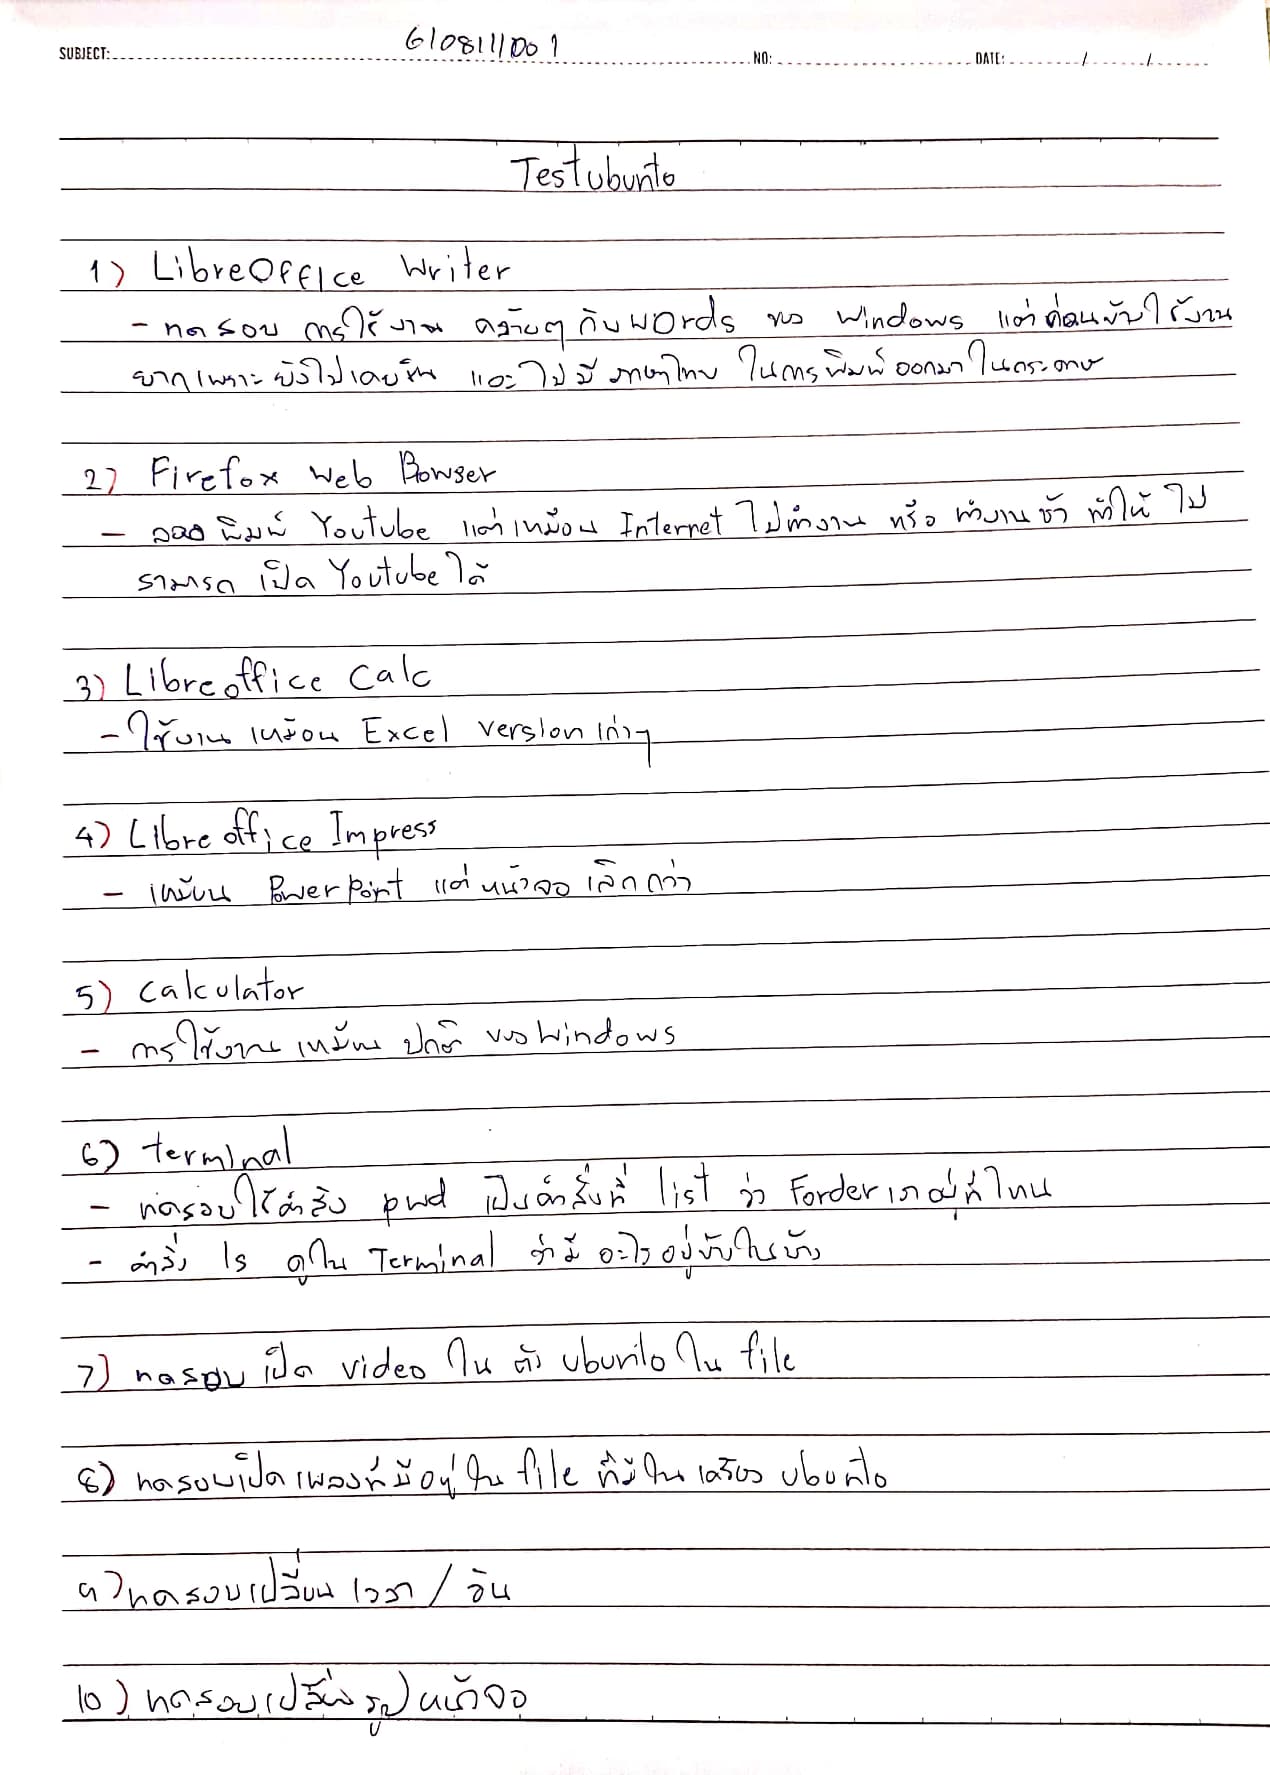 SUBJECT: 6108111001 NO: DATE: / /
Testubunto
1) LibreOffice Writer
- ทดสอบ การใช้งาน คล้ายๆ กับ words ของ windows แต่ค่อนข้างใช้งาน
ยากเพราะยังไม่เคยชิน และไม่มี ภาษาไทย ในการพิมพ์ออกมาในกระดาษ
2) Firefox web Bowser
- ลองพิมพ์ Youtube แต่เหมือน Internet ไม่ทำงาน หรือ ทำงานช้า ทำให้ ไม่
สามารถ เปิด Youtube ได้
3) Libreoffice Calc
- ใช้งาน เหมือน Excel version เก่าๆ
4) Libreoffice Impress
- เหมือน PowerPoint แต่ หน้าจอ เล็กกว่า
5) calculator
- การใช้งาน เหมือน ปกติ ของ windows
6) terminal
- ทดสอบใช้คำสั่ง pwd เป็นคำสั่งที่ list ว่า Forder เราอยู่ที่ไหน
- คำสั่ง ls ดูใน Terminal ว่ามี อะไรอยู่ข้างในบ้าง
7) ทดสอบ เปิด video ใน ตัว ubunto ใน file
8) ทดสอบเปิดเพลงที่มีอยู่ใน file ที่มีในเครื่อง ubunto
9) ทดสอบเปลี่ยน เวลา / วัน
10) ทดสอบเปลี่ยน รูปหน้าจอ